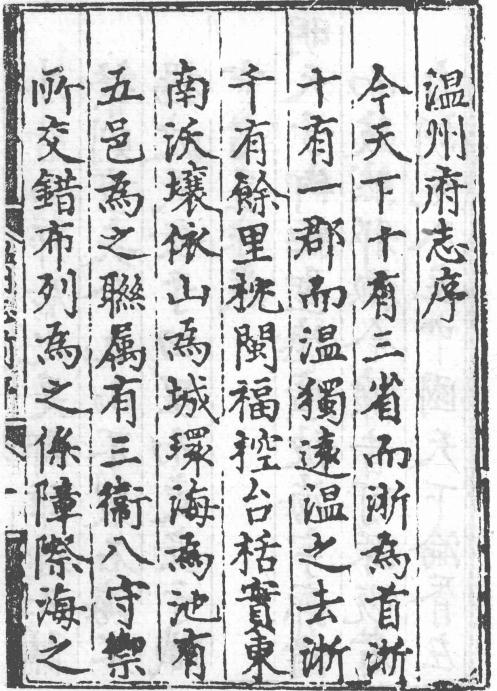 温州府志序
今天下十有三省而浙為首浙
十有一郡而温獨遠温之去浙
千有餘里枕閩福控台栝實東
南沃壤依山為城環海為池有
五邑為之聯属有三衛八守禦
所交錯布列為之保障際海之